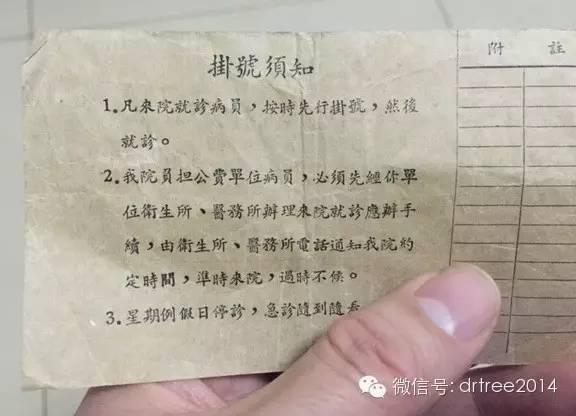 附 註
掛號須知
1.凡來院就診病員，按時先行掛號，然後
就診。
2.我院員担公費單位病員，必須先經你單
位衛生所、醫務所辦理來院就診應辦手
續，由衛生所、醫務所電話通知我院約
定時間，準時來院，過時不候。
3.星期例假日停診，急診隨到隨看
微信号: drtree2014